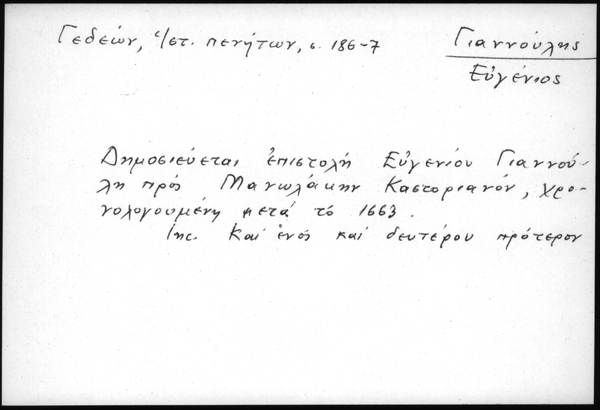 Γεδεών, Ἱστ. πενήτων, σ. 186-7
Γιαννούλης
Εὐγένιος
Δημοσιεύεται ἐπιστολή Εὐγενίου Γιαννού-
λη πρός Μανωλάκην Καστοριανόν, χρο-
νολογουμένη μετά τό 1663.
Καί ἑνός καί δευτέρου πρότερον